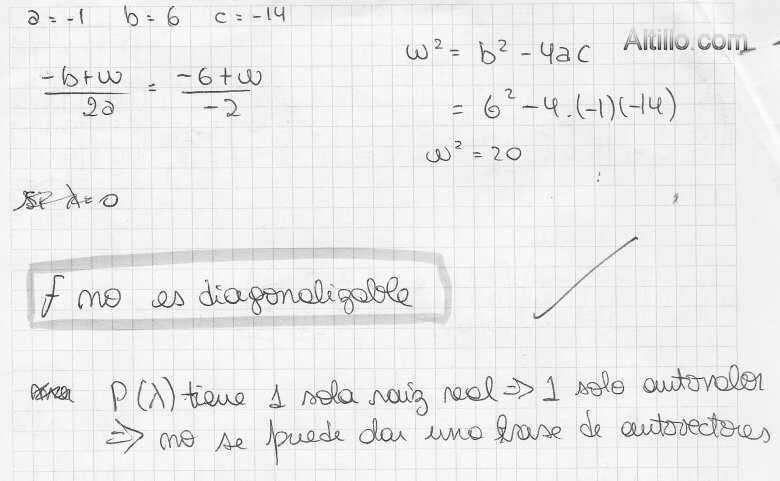 a = -1 b = 6 c = -14
Altillo.com
w² = b² - 4ac
-b+w / 2a = -6+w / -2
= 6² - 4.(-1)(-14)
w² = 20
λ = 0
f no es diagonalizable
P(λ) tiene 1 sola raiz real => 1 solo autovalor
=> no se puede dar una base de autovectores